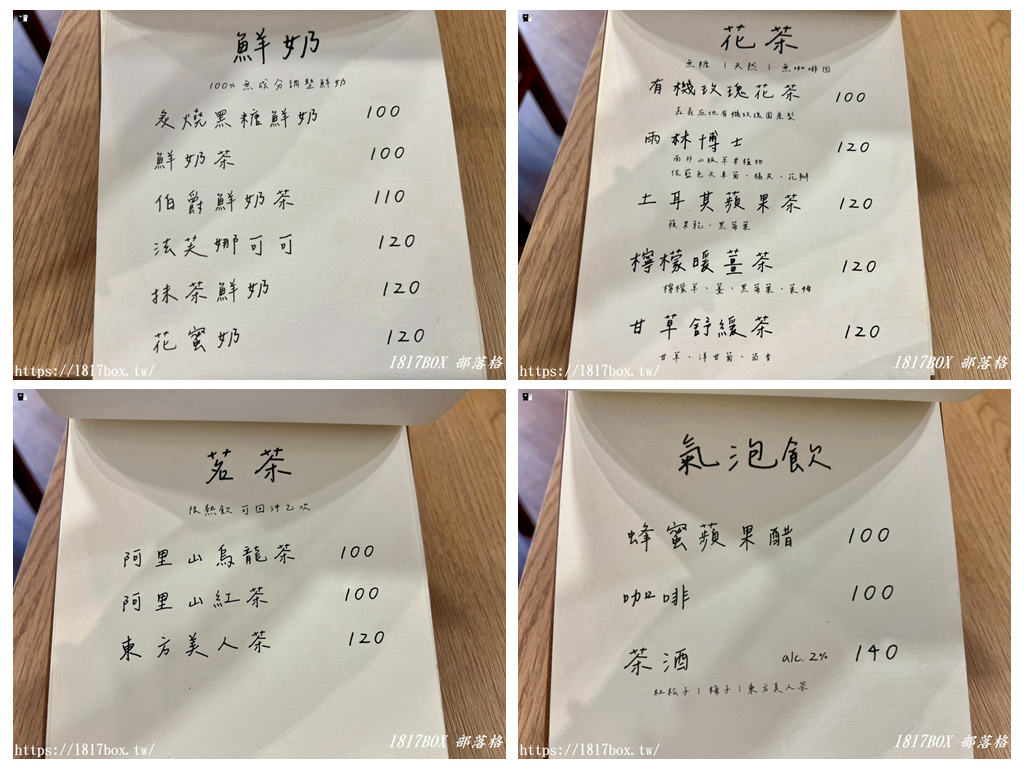 鮮奶
100% 無成分調整鮮奶
炙燒黑糖鮮奶 100
鮮奶茶 100
伯爵鮮奶茶 110
法芙娜可可 120
抹茶鮮奶 120
花蜜奶 120
https://1817box.tw/
1817BOX 部落格
花茶
無糖 | 天然 | 無咖啡因
有機玫瑰花茶 100
嘉義在地有機玫瑰園產製
雨林博士 120
南非山脈草本植物
佐藍色矢車菊、橘皮、花瓣
土耳其蘋果茶 120
蘋果乾、黑莓葉
檸檬暖薑茶 120
檸檬草、薑、黑莓葉
甘草舒緩茶 120
甘草、洋甘菊、茴香
https://1817box.tw/
1817BOX 部落格
茗茶
限熱飲 可回沖乙次
阿里山烏龍茶 100
阿里山紅茶 100
東方美人茶 120
https://1817box.tw/
1817BOX 部落格
氣泡飲
蜂蜜蘋果醋 100
咖啡 100
茶酒 alc. 2% 140
杜松子 | 梅子 | 東方美人茶
https://1817box.tw/
1817BOX 部落格